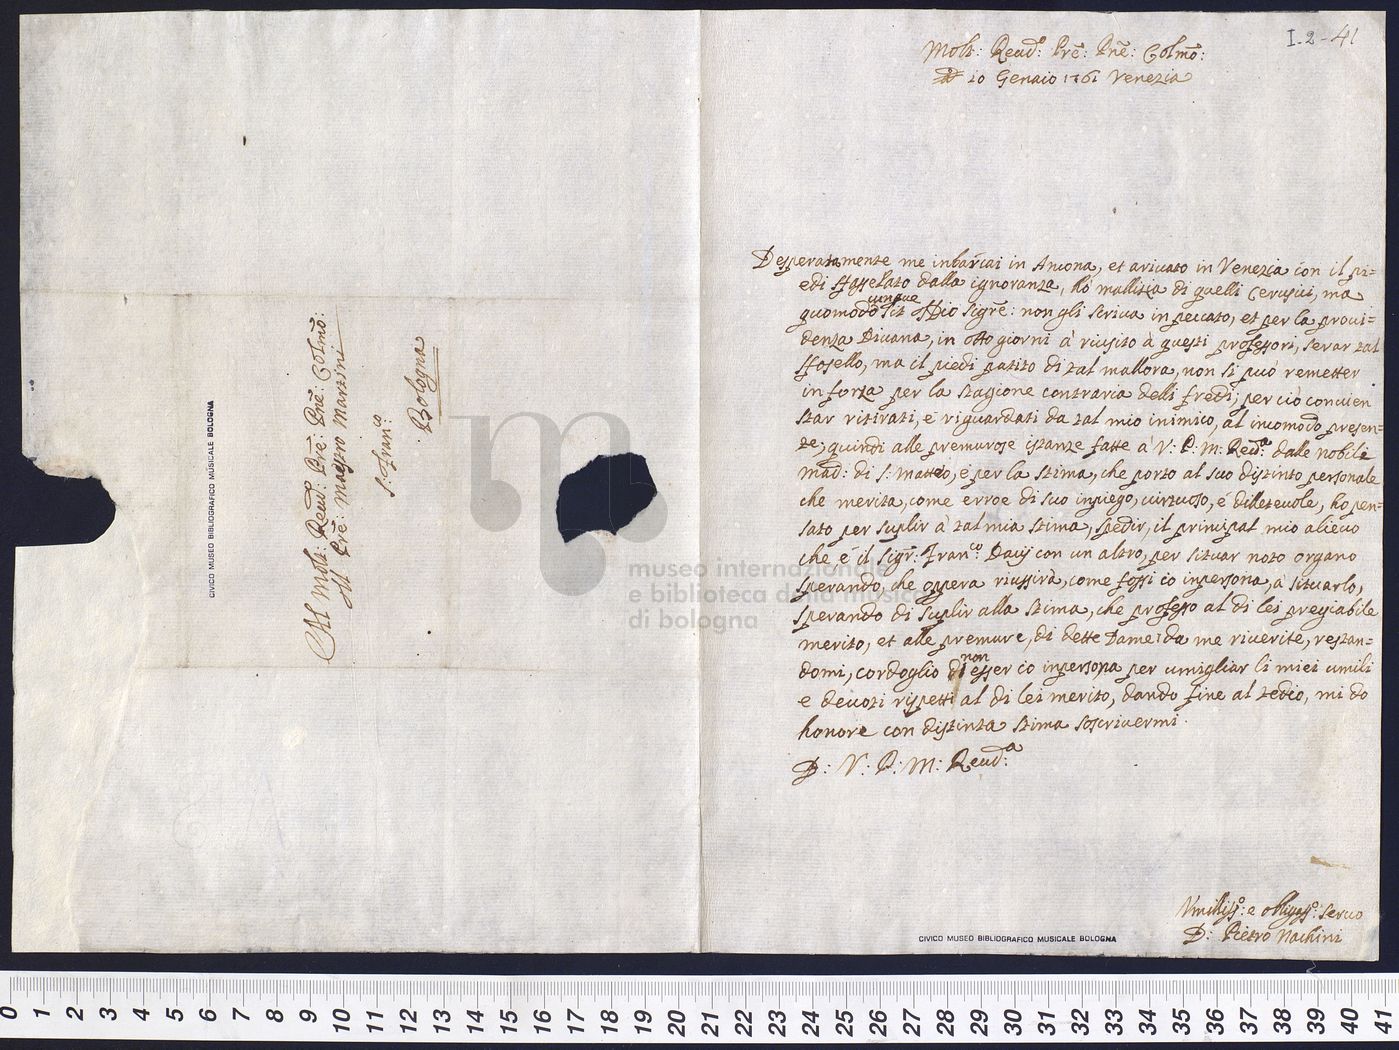 I. 2 - 41
Molt: Reud:º Prē: Pnē: Colmō:
10 Genaio 1761 Venezia
Desperatamente me inbarcai in Ancona, et ariuato in Venezia con il pi=
edi dalla ignoranza, hò mallizia di quelli Cerusici, ma
quomodo cunque sit Dio Sigrē: non gli scriua in peccato, et per la proui=
denza Diuana, in otto giorni à riusito à questi professori, serar tal
ma il piedi patito di tal mallora, non si può remetter
in forza per la stagione contraria delli fredi; per ciò conuien
star ritirati, e riguardati da tal mio inimico, al incomodo presen=
te; quindi alle premurose istanze fatte à V: P: M: Reud:ª dalle nobili
mad: di S: Matteo, é per la stima, che porto al suo distinto personale
che merita, come erroe di suo inpiego, uirtuoso, é dilleteuole, ho pen=
sato per suplir à tal mia stima, spedir, il principal mio alieuo
che é il Sigr: Fran:co Dacij con un altro, per situar noto organo
sperando, che oppera riussirà, come fossi io inpersona, à situarlo,
sperando di suplir alla stima, che professo al di lei pregiabile
merito, et alle premure, di dette Dame: da me riuerite, restan=
domi, cordoglio di non esser io inpersona per umigliar li miei umili
e deuoti rispetti al di lei merito, dando fine al tedio, mi do
honore con distinta stima soscriuermi.
D: V: P: M: Reud:ª
Vmilliss:º: e obligass:º: seruo
D: Pietro Nachini
CIVICO MUSEO BIBLIOGRAFICO MUSICALE BOLOGNA
Al Molt: Reud: Prē: Pnē: Colmō:
Il Prē: Maestro Martini
S: Fran:co
Bologna
CIVICO MUSEO BIBLIOGRAFICO MUSICALE BOLOGNA
museo internazionale
e biblioteca della musica
di bologna
0 1 2 3 4 5 6 7 8 9 10 11 12 13 14 15 16 17 18 19 20 21 22 23 24 25 26 27 28 29 30 31 32 33 34 35 36 37 38 39 40 41